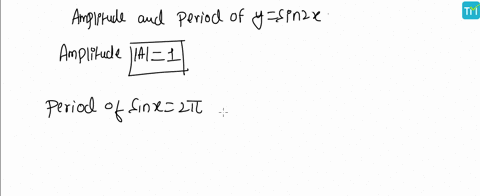 Amplitude and Period of y=sin2x
TM
Amplitude |A|=1
Period of sinx=2π